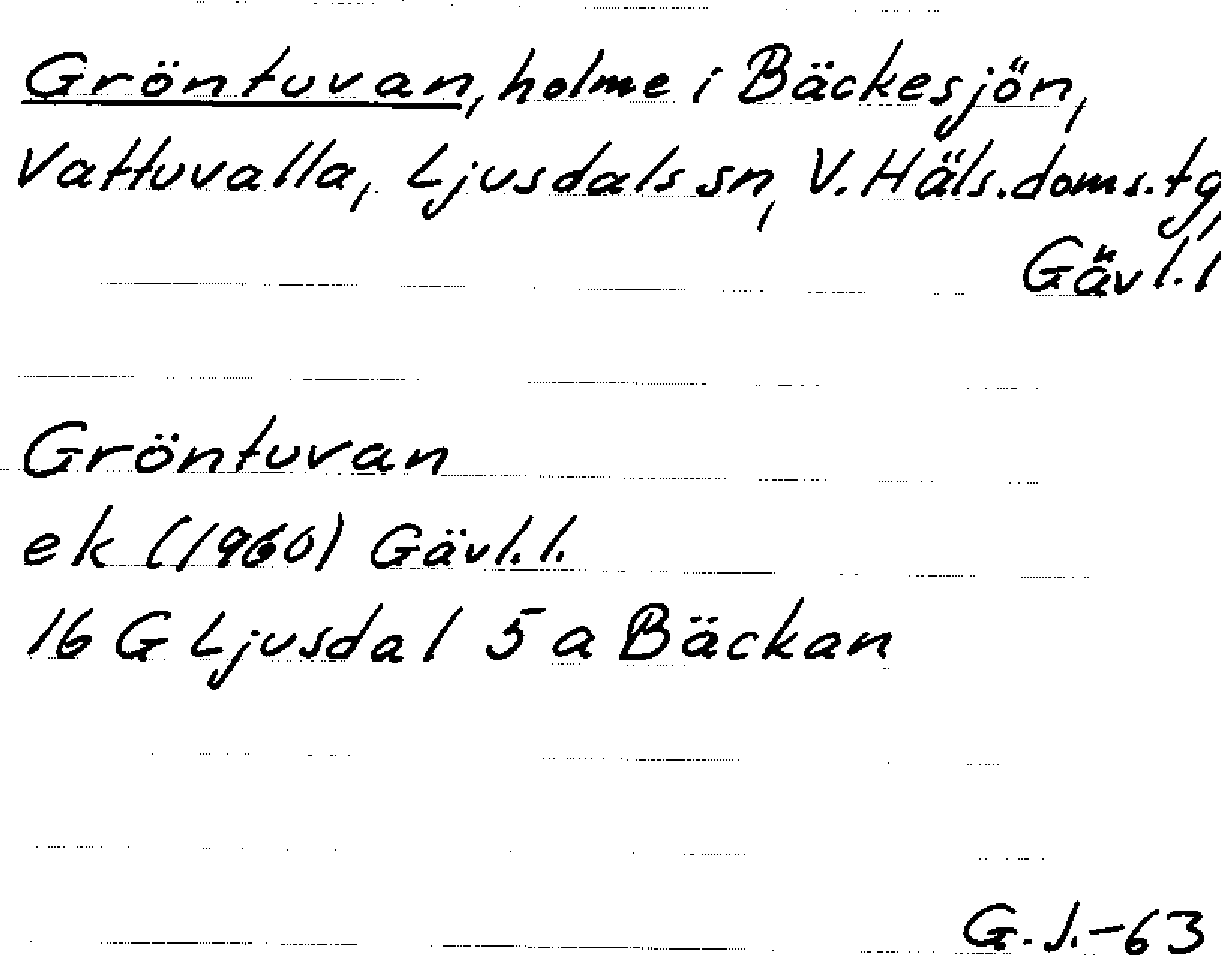 Gröntuvan, holme i Bäckesjön,
Vattuvalla, Ljusdals sn, V. Häls. doms. tg,
Gävl. l
Gröntuvan
ek (1960) Gävl. l.
16 G Ljusdal 5 a Bäckan
G. J. -63